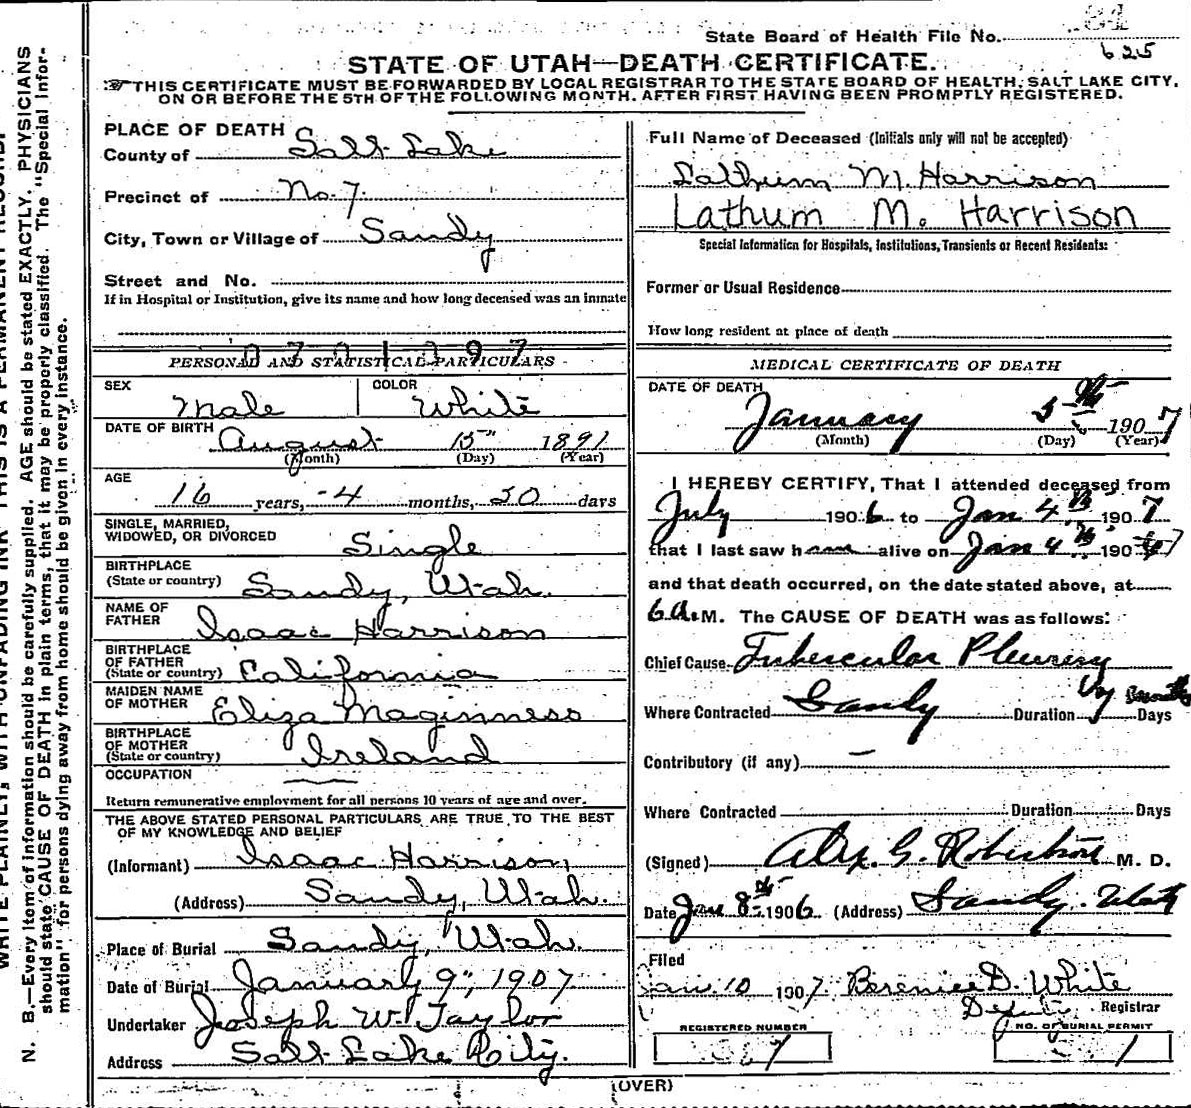 State Board of Health File No.
625
STATE OF UTAH—DEATH CERTIFICATE.
THIS CERTIFICATE MUST BE FORWARDED BY LOCAL REGISTRAR TO THE STATE BOARD OF HEALTH, SALT LAKE CITY,
ON OR BEFORE THE 5TH OF THE FOLLOWING MONTH. AFTER FIRST HAVING BEEN PROMPTLY REGISTERED.
PLACE OF DEATH
County of Salt Lake
Precinct of No. 7.
City, Town or Village of Sandy
Street and No.
If in Hospital or Institution, give its name and how long deceased was an inmate
PERSONAL AND STATISTICAL PARTICULARS
SEX
Male
COLOR
White
DATE OF BIRTH August 15" 1891
(Month) (Day) (Year)
AGE
16 years, 4 months, 20 days
SINGLE, MARRIED,
WIDOWED, OR DIVORCED Single
BIRTHPLACE
(State or country) Sandy, Utah.
NAME OF
FATHER Isaac Harrison
BIRTHPLACE
OF FATHER
(State or country) California
MAIDEN NAME
OF MOTHER Eliza Maginness
BIRTHPLACE
OF MOTHER
(State or country) Ireland
OCCUPATION
Return remunerative employment for all persons 10 years of age and over.
THE ABOVE STATED PERSONAL PARTICULARS ARE TRUE TO THE BEST
OF MY KNOWLEDGE AND BELIEF
(Informant) Isaac Harrison
(Address) Sandy, Utah.
Place of Burial Sandy, Utah.
Date of Burial January 9", 1907
Undertaker Joseph W. Taylor
Address Salt Lake City.
Full Name of Deceased (Initials only will not be accepted)
Lathum M. Harrison
Lathum M. Harrison
Special Information for Hospitals, Institutions, Transients or Recent Residents:
Former or Usual Residence
How long resident at place of death
MEDICAL CERTIFICATE OF DEATH
DATE OF DEATH
January 5th 1907
(Month) (Day) (Year)
I HEREBY CERTIFY, That I attended deceased from
July 1906 to Jan 4th 1907
that I last saw him alive on Jan 4th 1907
and that death occurred, on the date stated above, at
6 a. M. The CAUSE OF DEATH was as follows:
Chief Cause Tubercular Pleurisy
Where Contracted Sandy Duration months Days
Contributory (if any) —
Where Contracted Duration Days
(Signed) Alex. G. Robertson M. D.
Date Jan 8th 1906 (Address) Sandy. Utah
Filed
Jan. 10 1907. Berenice D. White
Deputy Registrar
REGISTERED NUMBER
NO. OF BURIAL PERMIT
(OVER)
WRITE PLAINLY, WITH UNFADING INK—THIS IS A PERMANENT RECORD.
N. B.—Every item of information should be carefully supplied. AGE should be stated EXACTLY. PHYSICIANS
should state CAUSE OF DEATH in plain terms, that it may be properly classified. The "Special Infor-
mation" for persons dying away from home should be given in every instance.